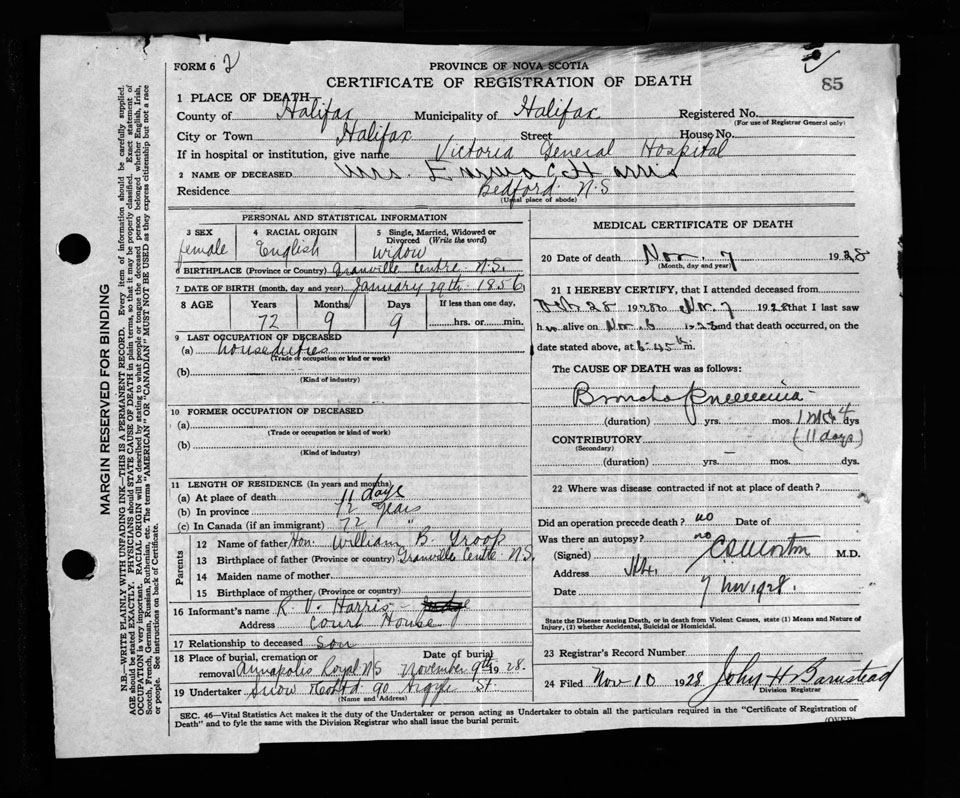 FORM 6 2
PROVINCE OF NOVA SCOTIA
CERTIFICATE OF REGISTRATION OF DEATH
85
1 PLACE OF DEATH
County of Halifax Municipality of Halifax Registered No.
(For use of Registrar General only)
City or Town Halifax Street House No.
If in hospital or institution, give name Victoria General Hospital
2 NAME OF DECEASED Mrs. Emma C Harris
Residence Bedford N.S
(Usual place of abode)
PERSONAL AND STATISTICAL INFORMATION
3 SEX 4 RACIAL ORIGIN 5 Single, Married, Widowed or
Divorced (Write the word)
female English Widow
6 BIRTHPLACE (Province or Country) Granville Centre N.S.
7 DATE OF BIRTH (month, day and year) January 29th 1856
8 AGE Years Months Days If less than one day,
72 9 9 hrs. or min.
9 LAST OCCUPATION OF DECEASED
(a) house duties
(Trade or occupation or kind of work)
(b)
(Kind of industry)
10 FORMER OCCUPATION OF DECEASED
(a)
(Trade or occupation or kind of work)
(b)
(Kind of industry)
11 LENGTH OF RESIDENCE (In years and months)
(a) At place of death 11 days
(b) In province 72 Years
(c) In Canada (if an immigrant) 72 "
Parents
12 Name of father Hon. William B. Troop
13 Birthplace of father (Province or country) Granville Centre N.S.
14 Maiden name of mother
15 Birthplace of mother (Province or country)
16 Informant's name R. V. Harris
Address Court House
17 Relationship to deceased Son
18 Place of burial, cremation or removal Annapolis Royal NS Date of burial November 9th 1928.
19 Undertaker Snow Co Ltd 90 Argyle St.
(Name and Address)
MEDICAL CERTIFICATE OF DEATH
20 Date of Death Nov. 7 1928
(Month, day and year)
21 I HEREBY CERTIFY, that I attended deceased from
28 1928 to Nov. 7 1928 that I last saw
h alive on Nov. 6 1928 and that death occurred, on the
date stated above, at 6.45 m.
The CAUSE OF DEATH was as follows:
Broncho pneumonia
(duration) yrs. mos. dys
CONTRIBUTORY (11 days)
(Secondary)
(duration) yrs. mos. dys.
22 Where was disease contracted if not at place of death?
Did an operation precede death? no Date of
Was there an autopsy? no
(Signed) M.D.
Address
Date 7 Nov 1928.
State the Disease causing Death, or in death from Violent Causes, state (1) Means and Nature of
Injury, (2) whether Accidental, Suicidal or Homicidal.
23 Registrar's Record Number
24 Filed Nov 10 1928 John H Barnstead
Division Registrar
SEC. 46—Vital Statistics Act makes it the duty of the Undertaker or person acting as Undertaker to obtain all the particulars required in the "Certificate of Registration of
Death" and to fyle the same with the Division Registrar who shall issue the burial permit.
(OVER)
MARGIN RESERVED FOR BINDING
N.B.—WRITE PLAINLY WITH UNFADING INK—THIS IS A PERMANENT RECORD. Every item of information should be carefully supplied.
AGE should be stated EXACTLY. PHYSICIANS should STATE CAUSE OF DEATH in plain terms, so that it may be properly classified. Exact statement of
OCCUPATION is very important. RACIAL ORIGIN will be described by stating to what people or tongue the deceased person belonged whether English, Irish,
Scotch, French, German, Russian, Ruthenian, etc. The terms "AMERICAN" OR "CANADIAN" MUST NOT BE USED as they express citizenship but not a race
or people. See instructions on back of Certificate.